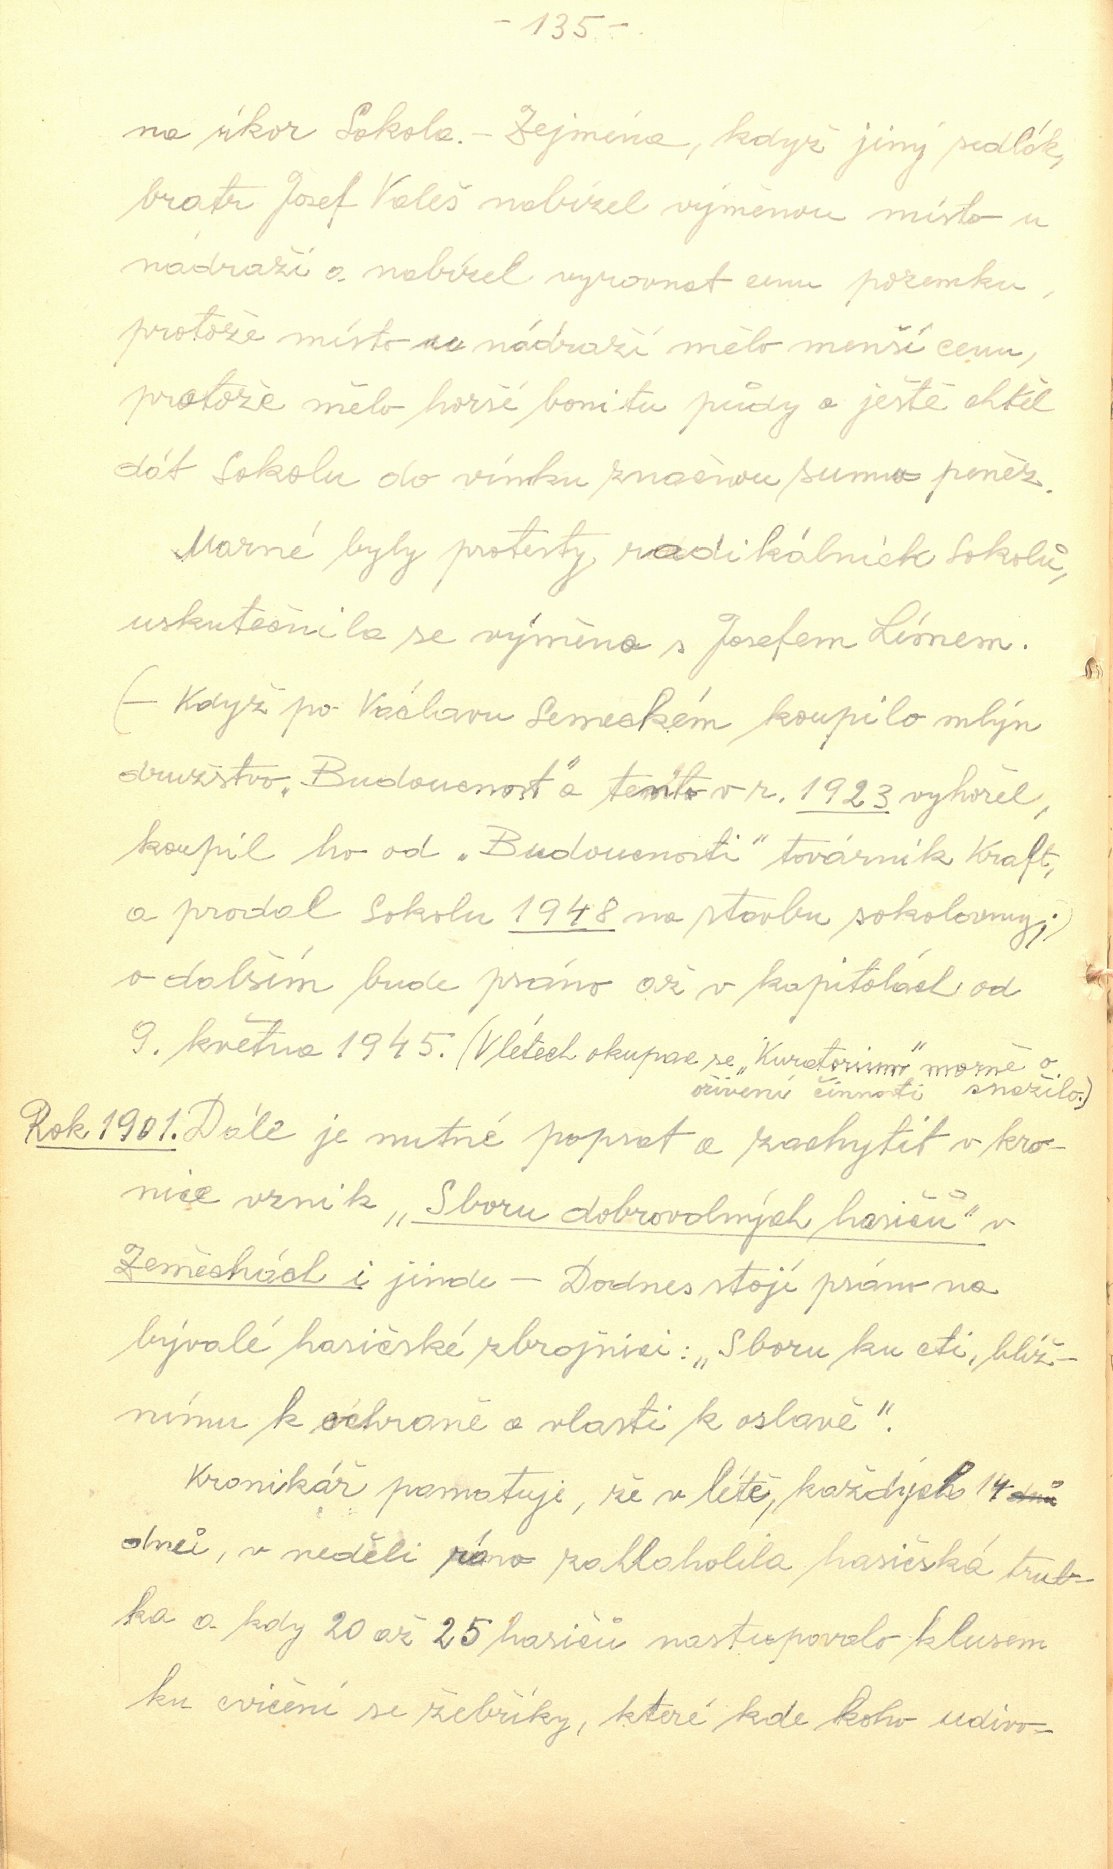 - 135 -
na úkor Sokola. - Zejména, když jiný sedlák,
bratr Josef Valeš nabízel výměnou místo u
nádraží a nabízel vyrovnat cenu pozemku,
protože místo u nádraží mělo menší cenu,
protože mělo horší bonitu půdy a ještě chtěl
dát Sokolu do vínku značnou sumu peněz.
Marné byly protesty radikálních Sokolů,
uskutečnila se výměna s Josefem Límem.
(- Když po Václavu Semeckém koupilo mlýn
družstvo „Budoucnost" a tento v r. 1923 vyhořel,
koupil ho od „Budoucnosti" továrník Kraft,
a prodal Sokolu 1948 na stavbu sokolovny;)
o dalším bude psáno až v kapitolách od
9. května 1945. (V létech okupace se „Kuratorium" marně o
oživení činnosti snažilo.)
Rok 1901. Dále je nutné popsat a zachytit v kro-
nice vznik „Sboru dobrovolných hasičů" v
Zeměchách i jinde - Dodnes stojí psáno na
bývalé hasičské zbrojnici: „Sboru ku cti, bliž-
nímu k ochraně a vlasti k oslavě".
Kronikář pamatuje, že v létě, každých 14 dnů
dnů, v neděli ráno zahlaholila hasičská trub-
ka a kdy 20 až 25 hasičů nastupovalo klusem
ku cvičení se žebříky, které kde koho udivo-